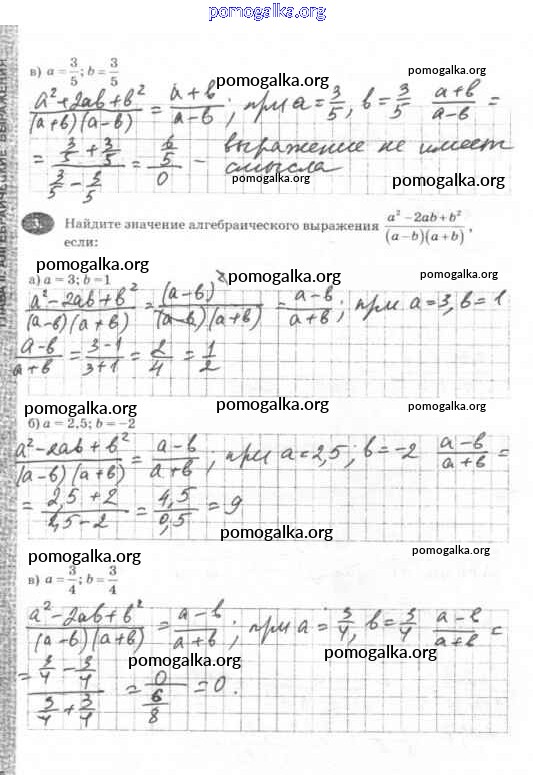 pomogalka.org
pomogalka.org
в) a = 3/5; b = 3/5
pomogalka.org
pomogalka.org
a² + 2ab + b² / (a+b)(a−b) = a+b / a−b ; при a = 3/5, b = 3/5 a+b / a−b =
pomogalka.org
pomogalka.org
= 3/5 + 3/5 / 3/5 − 3/5 = 6/5 / 0 – выражение не имеет смысла
pomogalka.org
pomogalka.org
ГЛАВА 1 АЛГЕБРАИЧЕСКИЕ ВЫРАЖЕНИЯ
3. Найдите значение алгебраического выражения a² − 2ab + b² / (a − b)(a + b),
если:
pomogalka.org
pomogalka.org
pomogalka.org
а) a = 3; b = 1
a² − 2ab + b² / (a−b)(a+b) = (a−b)² / (a−b)(a+b) = a−b / a+b ; при a = 3, b = 1
a−b / a+b = 3−1 / 3+1 = 2/4 = 1/2
pomogalka.org
pomogalka.org
pomogalka.org
pomogalka.org
б) a = 2,5; b = −2
a² − 2ab + b² / (a−b)(a+b) = a−b / a+b ; при a = 2,5 ; b = −2 a−b / a+b =
= 2,5 + 2 / 2,5 − 2 = 4,5 / 0,5 = 9
pomogalka.org
pomogalka.org
pomogalka.org
в) a = 3/4; b = 3/4
a² − 2ab + b² / (a−b)(a+b) = a−b / a+b ; при a = 3/4, b = 3/4 a−b / a+b =
pomogalka.org
pomogalka.org
= 3/4 − 3/4 / 3/4 + 3/4 = 0 / 6/8 = 0.